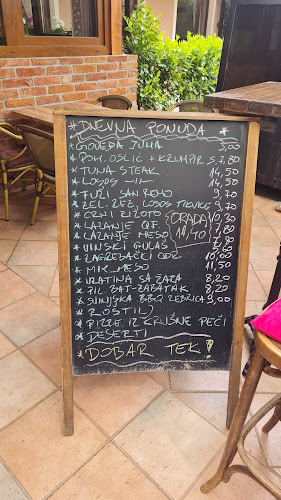 * DNEVNA PONUDA *
* GOVEĐA JUHA 3,00
* POH. OSLIĆ + KRUMPIR S. 7,80
* TUNA STEAK 14,50
* LOSOS -11- 14,50
* FUŽI SAN REMO 9,70
* ZEL. REZ, LOSOS TIKVICE 9,70
* CRNI RIŽOTO 10,30
* LAZANJE QF 7,80
* LAZANJE MESO
ORADA 11,40
* LINSKI GULAŠ 9,80
* ZAGREBAČKI ODR. 10,00
* MIX MESO 11,50
* VRATINA SA ŽARA 8,20
* FIL. BAT-ZABATAK 8,20
* SVINJSKA BBQ REBRICA 9,00
* ROŠTILJ
* PIZZE IZ KRUŠNE PEĆI
* DESERTI
* DOBAR TEK!